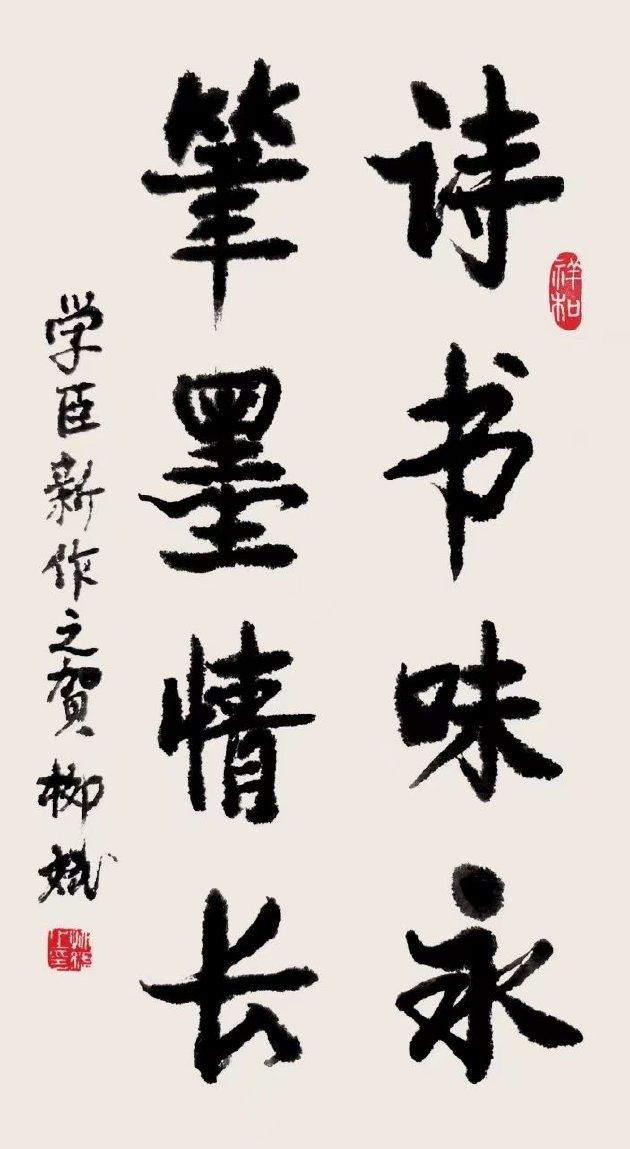 诗书味永
筆墨情长
学臣新作之賀 柳斌
祥和